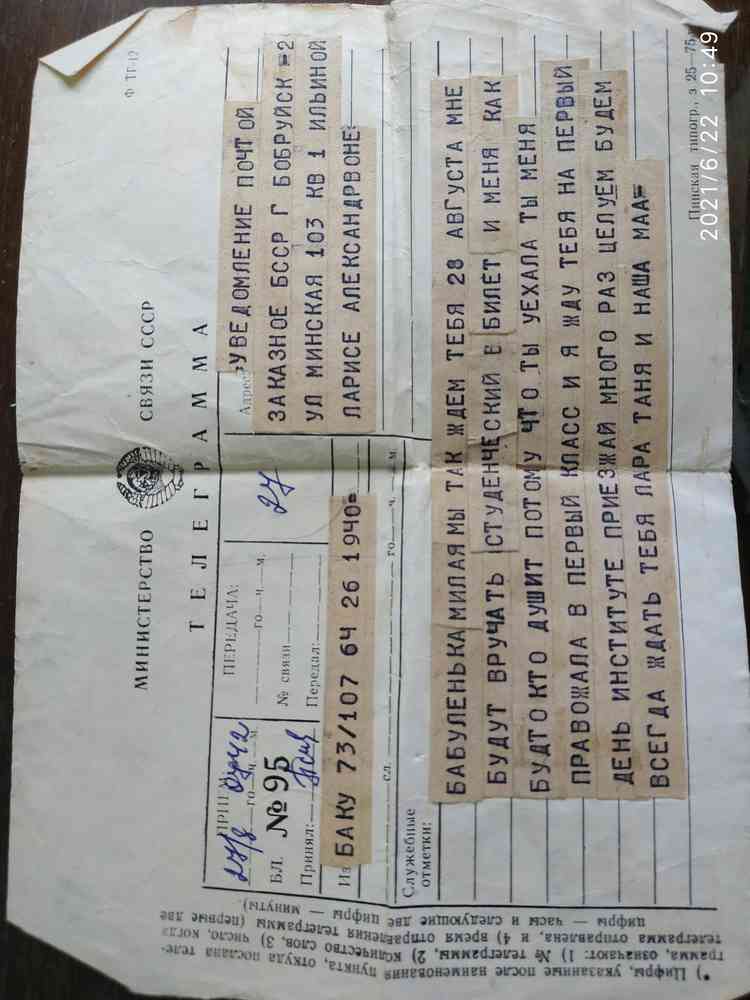 Ф ТГ-12
МИНИСТЕРСТВО СВЯЗИ СССР
ТЕЛЕГРАММА
ПРИЕМ:
27/8
го ч. м.
БЛ. № 95
Принял:
ПЕРЕДАЧА:
го ч. м.
№ связи
Передал:
27
Адрес:
=УВЕДОМЛЕНИЕ ПОЧТОЙ
ЗАКАЗНОЕ БССР Г БОБРУЙСК =2
УЛ МИНСКАЯ 103 КВ 1 ИЛЬИНОЙ
ЛАРИСЕ АЛЕКСАНДРВОНЕ=
Из БАКУ 73/107 64 26 1940=
сл. го ч. м.
Служебные
отметки:
БАБУЛЕНЬКА МИЛАЯ МЫ ТАК ЖДЕМ ТЕБЯ 28 АВГУСТА МНЕ
БУДУТ ВРУЧАТЬ СТУДЕНЧЕСКИЙ Е БИЛЕТ И МЕНЯ КАК
БУДТО КТО ДУШИТ ПОТОМУ ЧТО ТЫ УЕХАЛА ТЫ МЕНЯ
ПРАВОЖАЛА В ПЕРВЫЙ КЛАСС И Я ЖДУ ТЕБЯ НА ПЕРВЫЙ
ДЕНЬ ИНСТИТУТЕ ПРИЕЗЖАЙ МНОГО РАЗ ЦЕЛУЕМ БУДЕМ
ВСЕГДА ЖДАТЬ ТЕБЯ ЛАРА ТАНЯ И НАША МАА=
Пинская типогр., з. 25—75
*) Цифры, указанные после наименования пункта, откуда послана теле-
грамма, означают: 1) № телеграммы, 2) количество слов, 3) число, когда
телеграмма отправлена и, 4) время отправления телеграммы (первые две
цифры — часы и следующие две цифры — минуты).
2021/6/22 10:49